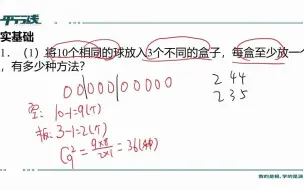 实基础
1. (1) 将10个相同的球放入3个不同的盒子，每盒至少放一个
，有多少种方法?
00|0000|00000
2 4 4
2 3 5
空: 10-1=9(个)
板: 3-1=2(个)
C₉² = 9×8/2×1 = 36(种)